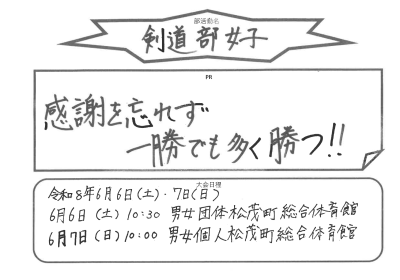 部活動名
剣道部女子
PR
感謝を忘れず
一勝でも多く勝つ!!
大会日程
令和8年6月6日(土)・7日(日)
6月6日(土)10:30 男女団体松茂町総合体育館
6月7日(日)10:00 男女個人松茂町総合体育館